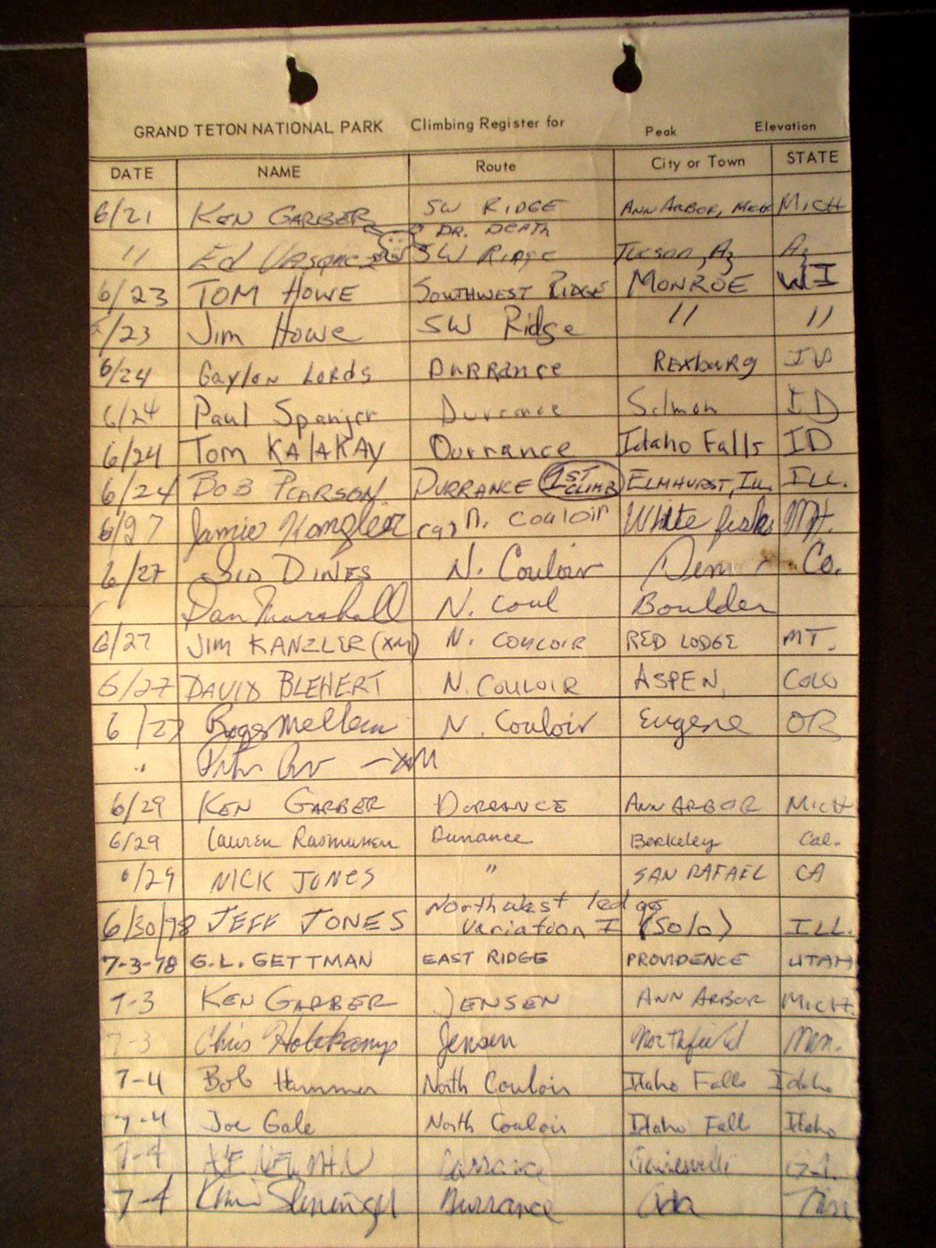 GRAND TETON NATIONAL PARK Climbing Register for Peak Elevation
DATE NAME Route City or Town STATE
6/21 KEN GARBER SW RIDGE ANN ARBOR, MICH
" Ed DR. DEATH SW RIDGE TUCSON, Az Az
6/23 TOM HOWE SOUTHWEST RIDGE MONROE WI
/23 Jim Howe SW Ridge " "
6/24 Gaylon Lords DURRANCE REXBURG ID
6/24 Paul Spanjer Durrance Salmon ID
6/24 TOM KALAKAY Durrance Idaho Falls ID
6/24 BOB PEARSON DURRANCE 1ST CLIMB ELMHURST, ILL. ILL.
6/27 Jamie N. Couloir White fish Mt.
6/27 SID DINES N. Couloir Co.
Dan Marshall N. Coul Boulder
6/27 JIM KANZLER (XM) N. COULOIR RED LODGE MT.
6/27 DAVID BLEHERT N. COULOIR ASPEN, COLO
6/27 N. Couloir Eugene OR
" — XM
6/29 KEN GARBER DURRANCE ANN ARBOR MICH
6/29 Lauren Rasmussen Durrance Berkeley Cal.
6/29 NICK JONES " SAN RAFAEL CA
6/30/78 JEFF JONES Northwest ledges Variation I (Solo) ILL.
7-3-78 G.L. GETTMAN EAST RIDGE PROVIDENCE UTAH
7-3 KEN GARBER JENSEN ANN ARBOR MICH
7-3 Chris Holtkamp Jensen Northfield Mn.
7-4 Bob Hammer North Couloir Idaho Falls Idaho
7-4 Joe Gale North Couloir Idaho Fall Idaho
7-4
7-4 Durrance